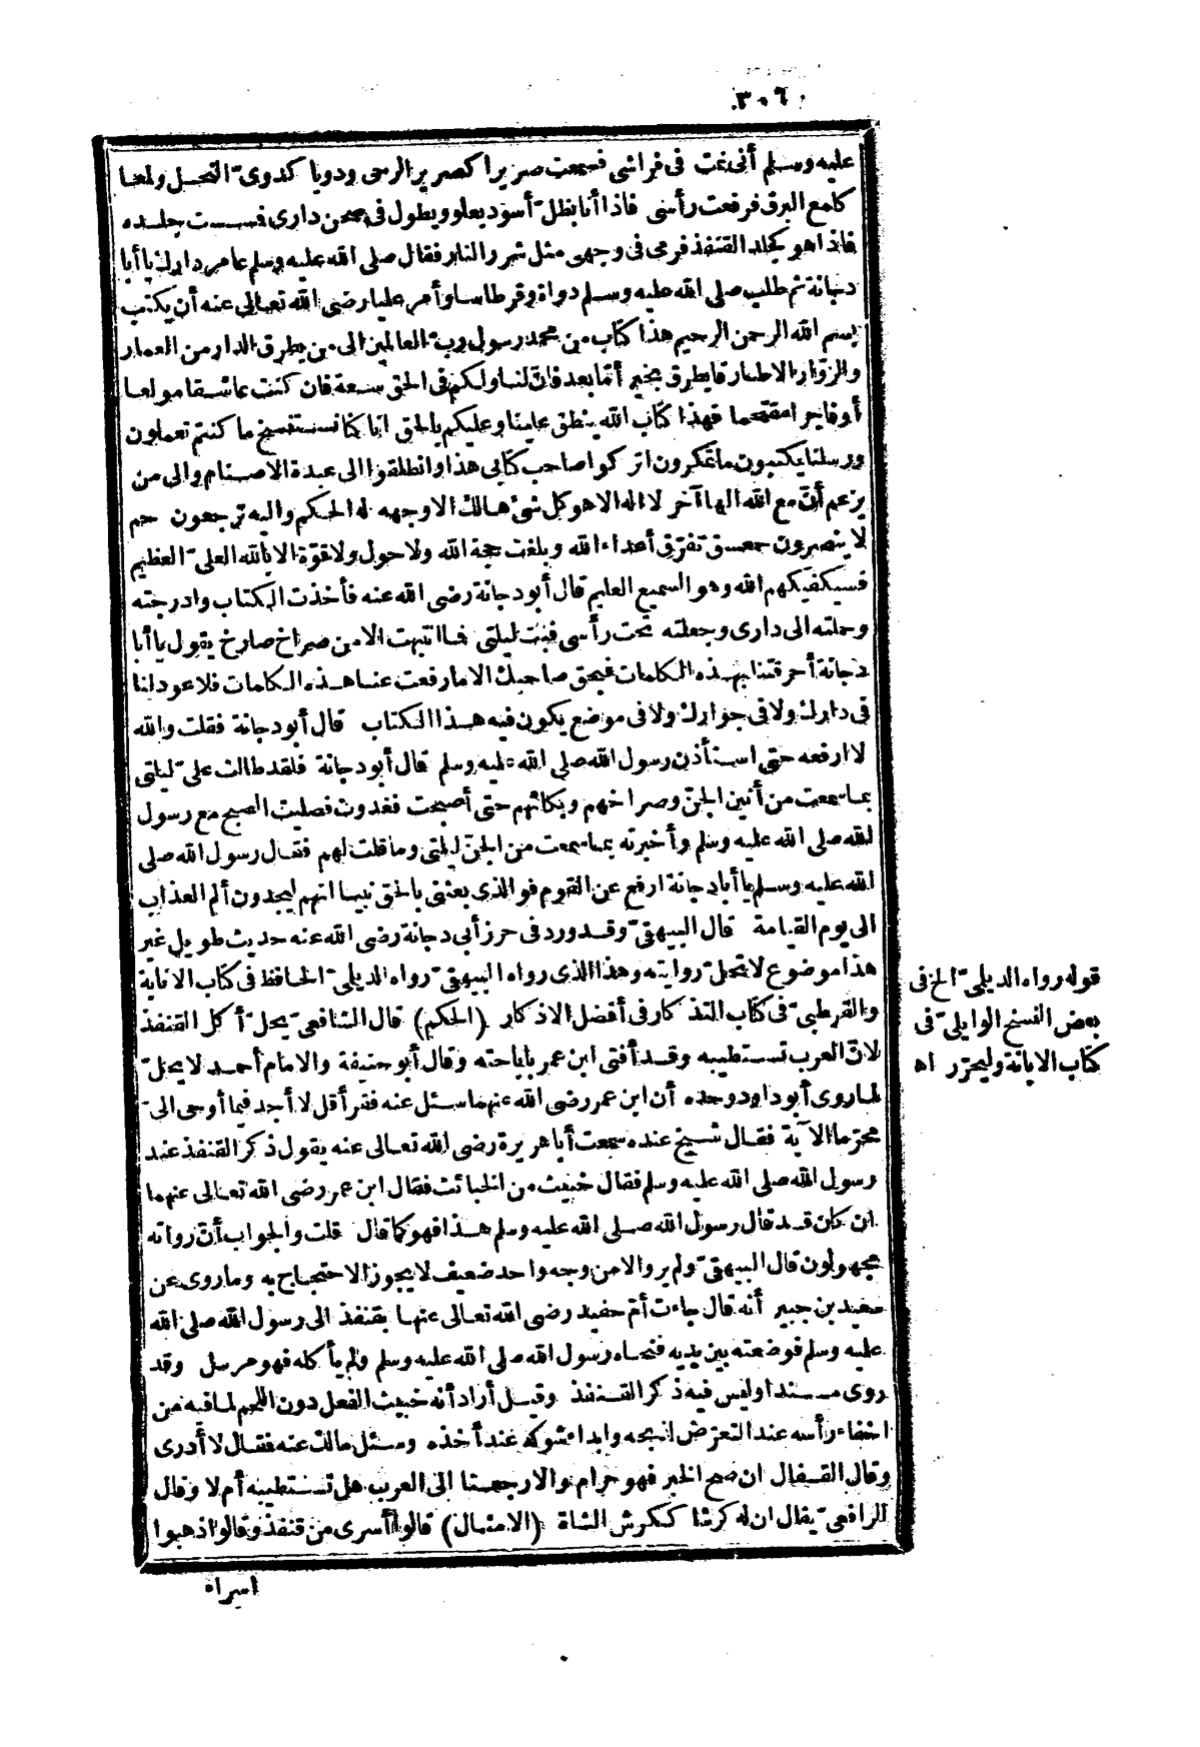 ٣٠٦
عليه وسلم أنى نمت فى فراشى فسمعت صريرا كصرير الرحى ودويا كدوى النحل ولمعا
كلمع البرق فرفعت رأسى فاذا أنا بظل أسود يعلو ويطول فى صحن دارى فمسست جلده
فاذا هو كجلد القنفذ فرمى فى وجهى مثل شرر النار فقال صلى الله عليه وسلم عامر دارك يا أبا
دجانة ثم طلب صلى الله عليه وسلم دواة وقرطاسا وأمر عليا رضى الله تعالى عنه أن يكتب
بسم الله الرحمن الرحيم هذا كتاب من محمد رسول رب العالمين الى من يطرق الدار من العمار
والزوار الا طارقا يطرق بخير أما بعد فان لنا ولكم فى الحق سعة فان كنت عاشقا مولعا
أو فاجرا مقتحما فهذا كتاب الله ينطق علينا وعليكم بالحق انا كنا نستنسخ ما كنتم تعملون
ورسلنا يكتبون ما تمكرون اتركوا صاحب كتابى هذا وانطلقوا الى عبدة الاصنام والى من
يزعم أن مع الله الها آخر لا اله الا هو كل شئ هالك الا وجهه له الحكم واليه ترجعون حم
لا ينصرون حمعسق تفرق أعداء الله وبلغت حجة الله ولا حول ولا قوة الا بالله العلى العظيم
فسيكفيكهم الله وهو السميع العليم قال أبو دجانة رضى الله عنه فأخذت الكتاب وادرجته
وحملته الى دارى وجعلته تحت رأسى فبت ليلتى فما انتبهت الا من صراخ صارخ يقول يا أبا
دجانة أحرقتنا بهذه الكلمات فبحق صاحبك الا ما رفعت عنا هذه الكلمات فلا عود لنا
فى دارك ولا فى جوارك ولا فى موضع يكون فيه هذا الكتاب قال أبو دجانة فقلت والله
لا ارفعه حتى استأذن رسول الله صلى الله عليه وسلم قال أبو دجانة فلقد طالت على ليلتى
بما سمعت من أنين الجن وصراخهم وبكائهم حتى أصبحت فغدوت فصليت الصبح مع رسول
الله صلى الله عليه وسلم وأخبرته بما سمعت من الجن ليلتى وما قلت لهم فقال رسول الله صلى
الله عليه وسلم يا أبا دجانة ارفع عن القوم فوالذى بعثنى بالحق نبيا انهم ليجدون ألم العذاب
الى يوم القيامة قال البيهقى وقد ورد فى حرز أبى دجانة رضى الله عنه حديث طويل غير
هذا موضوع لا تحل روايته وهذا الذى رواه البيهقى رواه الديلى الحافظ فى كتاب الانابة
والقرطبى فى كتاب التذكار فى أفضل الاذكار (الحكم) قال الشافعى يحل أكل القنفذ
لان العرب تستطيبه وقد أفتى ابن عمر باباحته وقال أبو حنيفة والامام أحمد لا يحل
لما روى أبو داود وحده أن ابن عمر رضى الله عنهما سئل عنه فقرأ قل لا أجد فيما أوحى الى
محرما الآية فقال شيخ عنده سمعت أبا هريرة رضى الله تعالى عنه يقول ذكر القنفذ عند
رسول الله صلى الله عليه وسلم فقال خبيث من الخبائث فقال ابن عمر رضى الله تعالى عنهما
ان كان قد قال رسول الله صلى الله عليه وسلم هذا فهو كما قال قلت والجواب أن رواته
مجهولون قال البيهقى ولم يرو الا من وجه واحد ضعيف لا يجوز الاحتجاج به وما روى عن
سعيد بن جبير أنه قال جاءت أم حفيد رضى الله تعالى عنها بقنفذ الى رسول الله صلى الله
عليه وسلم فوضعته بين يديه فنحاه رسول الله صلى الله عليه وسلم ولم يأكله فهو مرسل وقد
روى مسندا وليس فيه ذكر القنفذ وقيل أراد أنه خبيث الفعل دون اللحم لما فيه من
اخفاء رأسه عند التعرض لذبحه وابداء شوكه عند أخذه وسئل مالك عنه فقال لا أدرى
وقال القفال ان صح الخبر فهو حرام والا رجعنا الى العرب هل تستطيبه أم لا وقال
الرافعى يقال ان له كرشا ككرش الشاة (الامثال) قالوا أسرى من قنفذ وقالوا اذهبوا
اسراء
قوله رواه الديلى الخ فى
بعض النسخ الوايلى فى
كتاب الابانة وليحرر اه